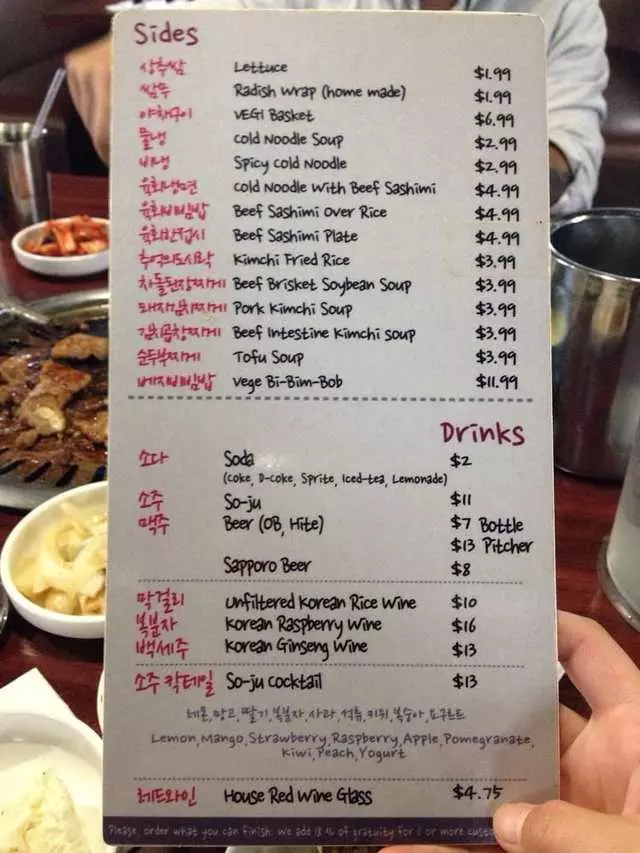 Sides
상추쌈 Lettuce $1.99
쌈무 Radish Wrap (home made) $1.99
야채구이 VEGI Basket $6.99
물냉 Cold Noodle Soup $2.99
비냉 Spicy Cold Noodle $2.99
육회냉면 Cold Noodle With Beef Sashimi $4.99
육회비빔밥 Beef Sashimi Over Rice $4.99
육회한접시 Beef Sashimi Plate $4.99
추억의도시락 Kimchi Fried Rice $3.99
차돌된장찌게 Beef Brisket Soybean Soup $3.99
돼지김치찌게 Pork Kimchi Soup $3.99
김치곱창찌게 Beef Intestine Kimchi Soup $3.99
순두부찌게 Tofu Soup $3.99
베지비빔밥 Vege Bi-Bim-Bob $11.99
Drinks
소다 Soda $2
(Coke, D-Coke, Sprite, Iced-tea, Lemonade)
소주 So-ju $11
맥주 Beer (OB, Hite) $7 Bottle
$13 Pitcher
Sapporo Beer $8
막걸리 Unfiltered Korean Rice Wine $10
복분자 Korean Raspberry Wine $16
백세주 Korean Ginseng Wine $13
소주 칵테일 So-ju Cocktail $13
레몬,망고,딸기,복분자,사과,석류,키위,복숭아,요구르트
Lemon,Mango,Strawberry,Raspberry,Apple,Pomegranate,
Kiwi,Peach,Yogurt
레드와인 House Red Wine Glass $4.75
Please, order what you can finish. We add 18 % of gratuity for or more